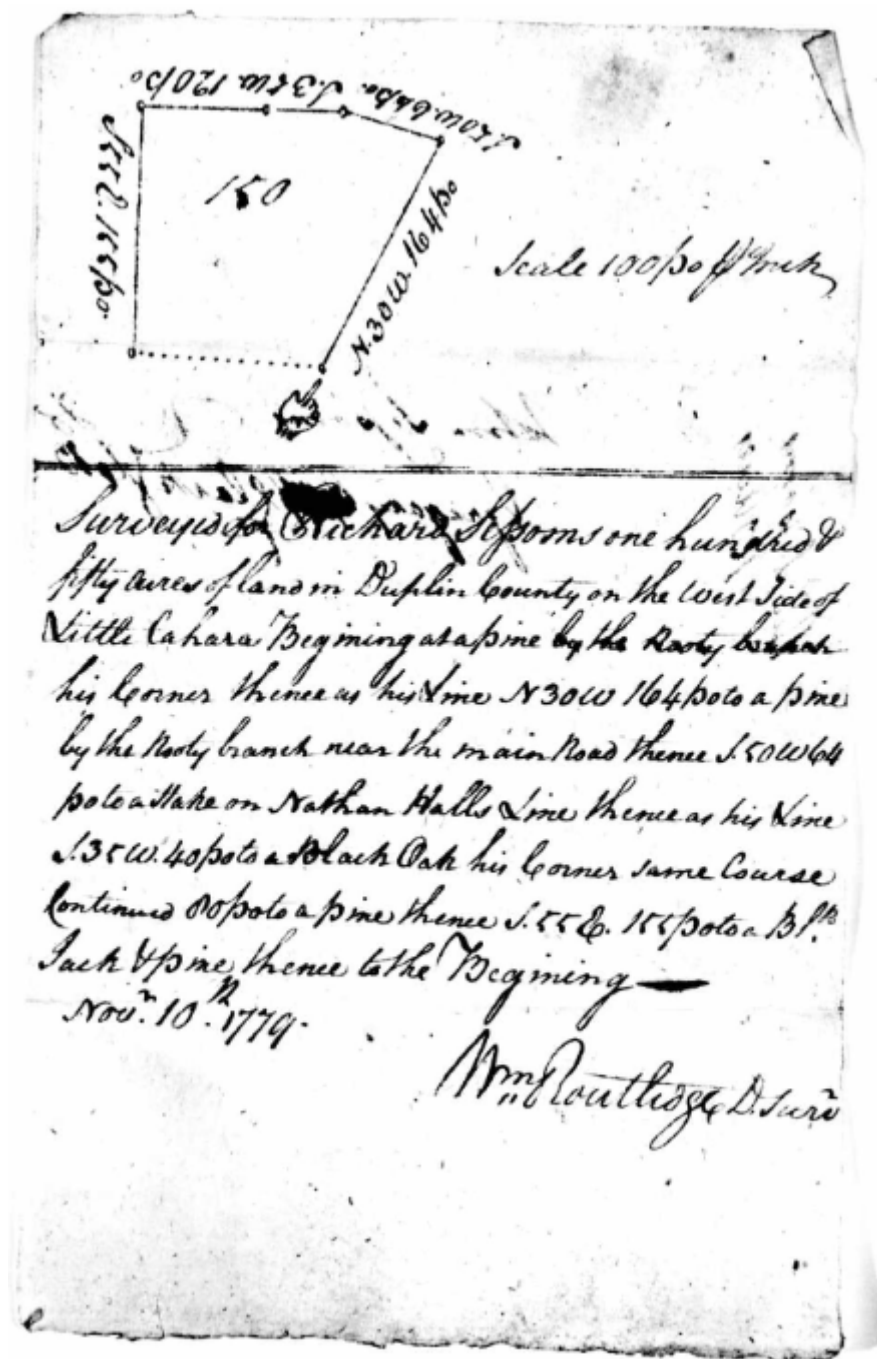 S.35W. 120po
S.50W. 64po.
S.55E. 155po.
150
N.30W. 164po
Scale 100po Inch
Surveyed for Richard Sessoms one hundred &
fifty acres of land in Duplin County on the West Side of
Little Cahara Begining at a pine by the Rooty branch
his Corner thence as his Line N30W 164 po to a pine
by the Rooty branch near the main Road thence S.50W 64
po to a Stake on Nathan Halls Line thence as his Line
S.35W. 40 po to a Black Oak his Corner same Course
Continued 80 po to a pine thence S.55E. 155 po to a Blk
Jack & pine thence to the Begining —
Novr. 10th. 1779.
Wm Routledge D. Surv